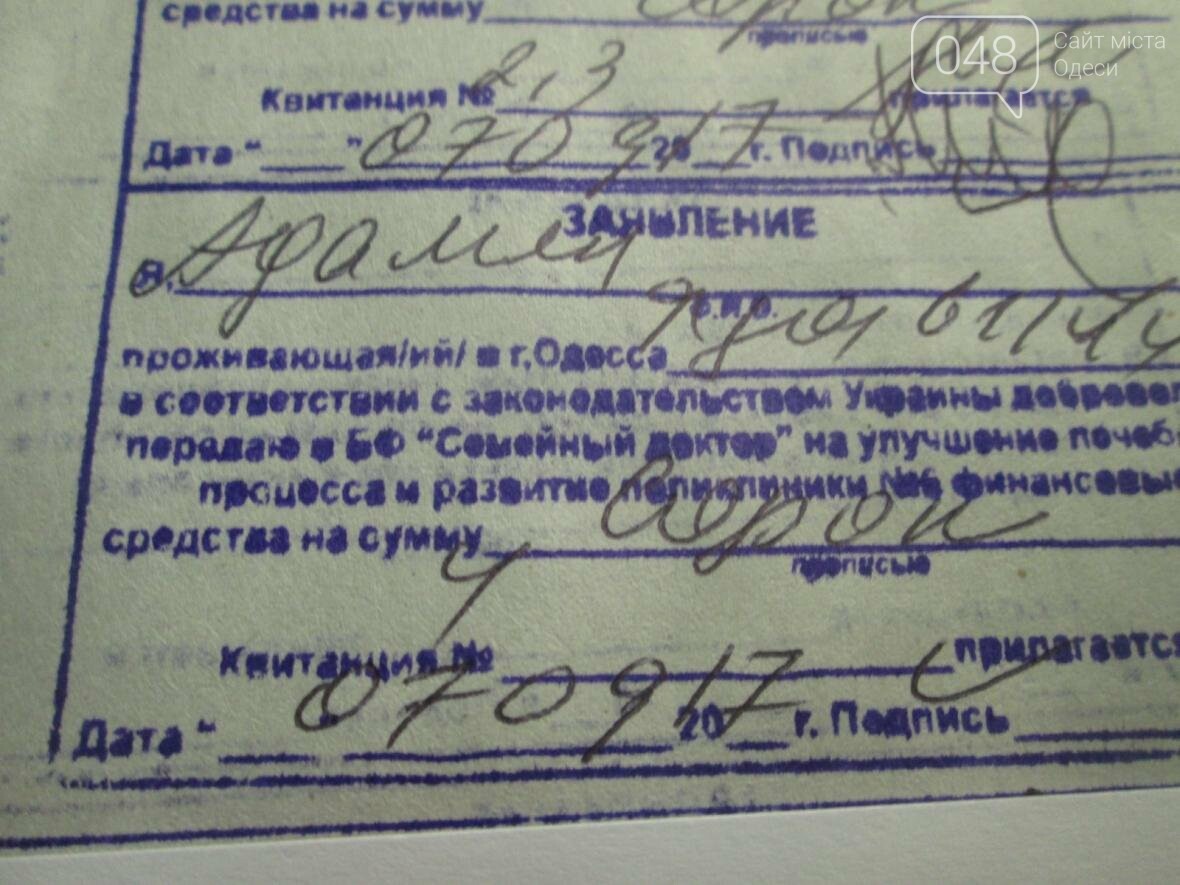 средства на сумму
прописью
048 Сайт міста Одеси
Квитанция № 2,3 прилагается
Дата "___" 070917 20___г. Подпись
ЗАЯВЛЕНИЕ
Я,
Ф.И.О.
проживающая/ий/ в г,Одесса
в соответствии с законодательством Украины добровол
передаю в БФ "Семейный доктор" на улучшение лечеб
процесса и развитие поликлиники №6 финансовые
средства на сумму
прописью
4
Квитанция № прилагается
Дата "___" 070917 20___г. Подпись